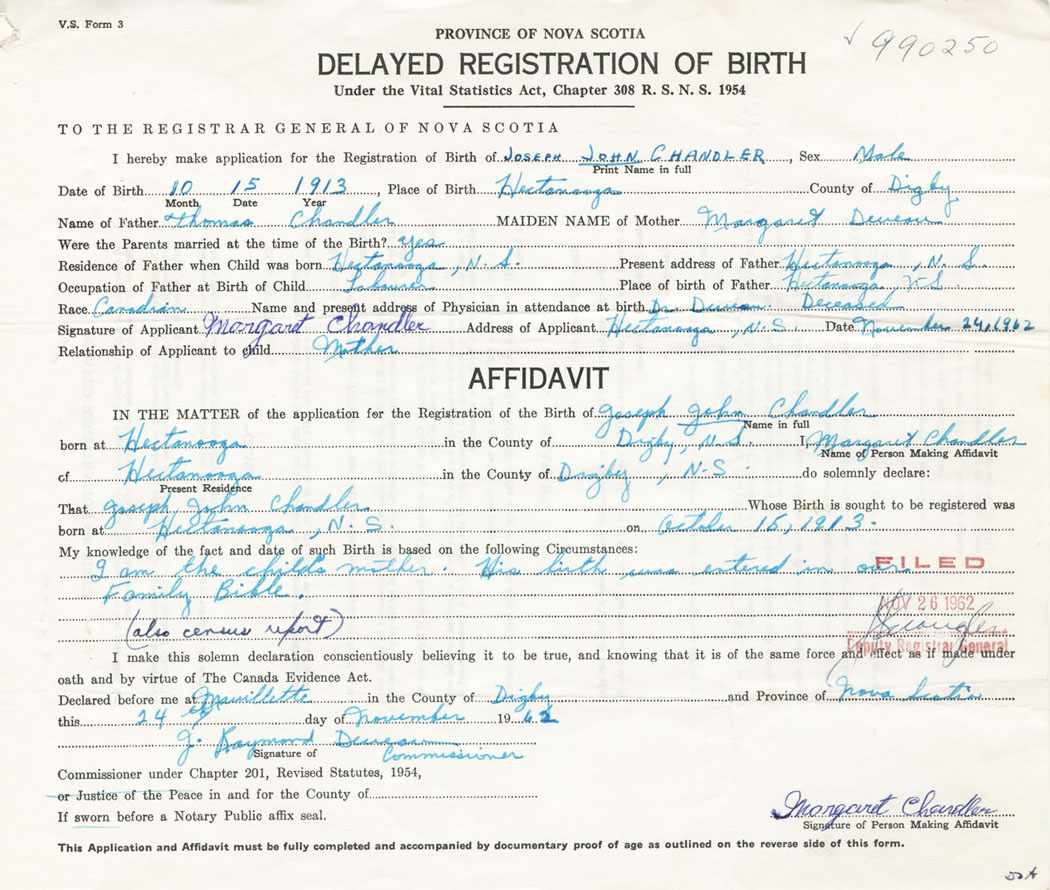 V.S. Form 3
990250
PROVINCE OF NOVA SCOTIA
DELAYED REGISTRATION OF BIRTH
Under the Vital Statistics Act, Chapter 308 R. S. N. S. 1954
TO THE REGISTRAR GENERAL OF NOVA SCOTIA
I hereby make application for the Registration of Birth of JOSEPH JOHN CHANDLER, Sex Male
Print Name in full
Date of Birth 10 15 1913, Place of Birth Hectanooga County of Digby
Month Date Year
Name of Father Thomas Chandler MAIDEN NAME of Mother Margaret Deveau
Were the Parents married at the time of the Birth? Yes
Residence of Father when Child was born Hectanooga, N.S. Present address of Father Hectanooga, N.S.
Occupation of Father at Birth of Child Labourer Place of birth of Father Hectanooga, N.S.
Race Canadian Name and present address of Physician in attendance at birth Dr. Deveau. Deceased
Signature of Applicant Margaret Chandler Address of Applicant Hectanooga, N.S. Date November 24, 1962
Relationship of Applicant to child Mother
AFFIDAVIT
IN THE MATTER of the application for the Registration of the Birth of Joseph John Chandler
Name in full
born at Hectanooga in the County of Digby, N.S. I Margaret Chandler
Name of Person Making Affidavit
of Hectanooga in the County of Digby, N.S. do solemnly declare:
Present Residence
That Joseph John Chandler Whose Birth is sought to be registered was
born at Hectanooga, N.S. on October 15, 1913.
My knowledge of the fact and date of such Birth is based on the following Circumstances:
I am the child's mother. His birth was entered in our
FILED
Family Bible.
NOV 26 1962
(also census report)
Deputy Registrar General
I make this solemn declaration conscientiously believing it to be true, and knowing that it is of the same force and effect as if made under
oath and by virtue of The Canada Evidence Act.
Declared before me at Mavillette in the County of Digby and Province of Nova Scotia
this 24 day of November 1962
J. Raymond Deveau
Signature of Commissioner
Commissioner under Chapter 201, Revised Statutes, 1954,
or Justice of the Peace in and for the County of
If sworn before a Notary Public affix seal.
Margaret Chandler
Signature of Person Making Affidavit
This Application and Affidavit must be fully completed and accompanied by documentary proof of age as outlined on the reverse side of this form.